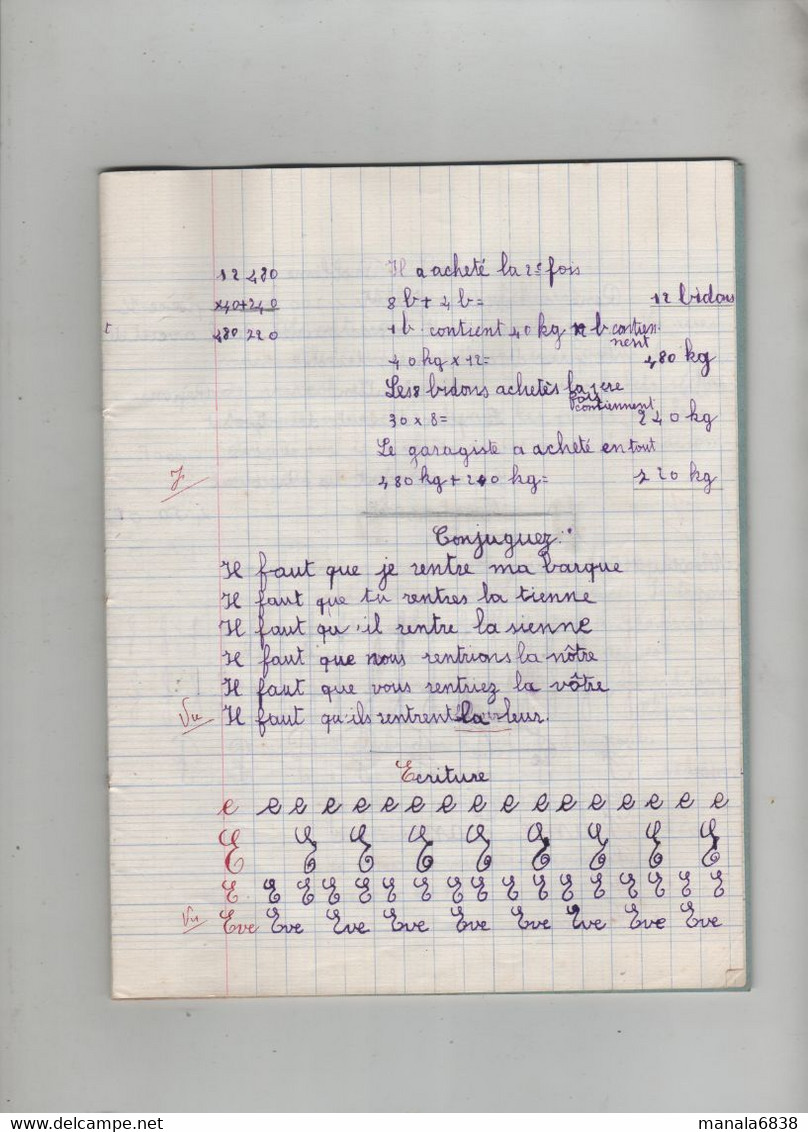 12 480
x40+240
480 720
Il a acheté la 2e fois
8 b + 4 b = 12 bidons
1 b contient 40 kg 12 b contiennent
40 kg x 12 = 480 kg
Les 8 bidons achetés la 1ere fois contiennent
30 x 8 = 240 kg
Le garagiste a acheté en tout
J
480 kg + 240 kg = 720 kg
Conjuguez :
Il faut que je rentre ma barque
Il faut que tu rentres la tienne
Il faut qu'il rentre la sienne
Il faut que nous rentrions la nôtre
Il faut que vous rentriez la vôtre
Vu Il faut qu'ils rentrent la leur.
Ecriture
e e e e e e e e e e e e e e e e e
E E E E E E E E E
E E E E E E E E E E E E E E E E E
Vu Eve Eve Eve Eve Eve Eve Eve Eve Eve
www.delcampe.net
manala6838